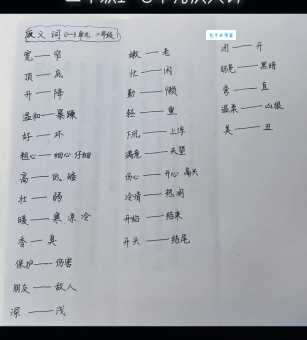 反义词 (1-8单元 二年级)
宽——窄
顶——底
升——降
温和——暴躁
好——坏
粗心——细心 仔细
高——低 矮
壮——弱
暖——寒 凉 冷
香——臭
保护——伤害
朋友——敌人
深——浅
嫩——老
忙——闲
勤——懒
轻——重
下沉——上浮
满意——失望
伤心——开心 高兴
冷清——热闹
开始——结束
开头——结尾
闭——开
明亮——黑暗
弯——直
温柔——凶狠
美——丑